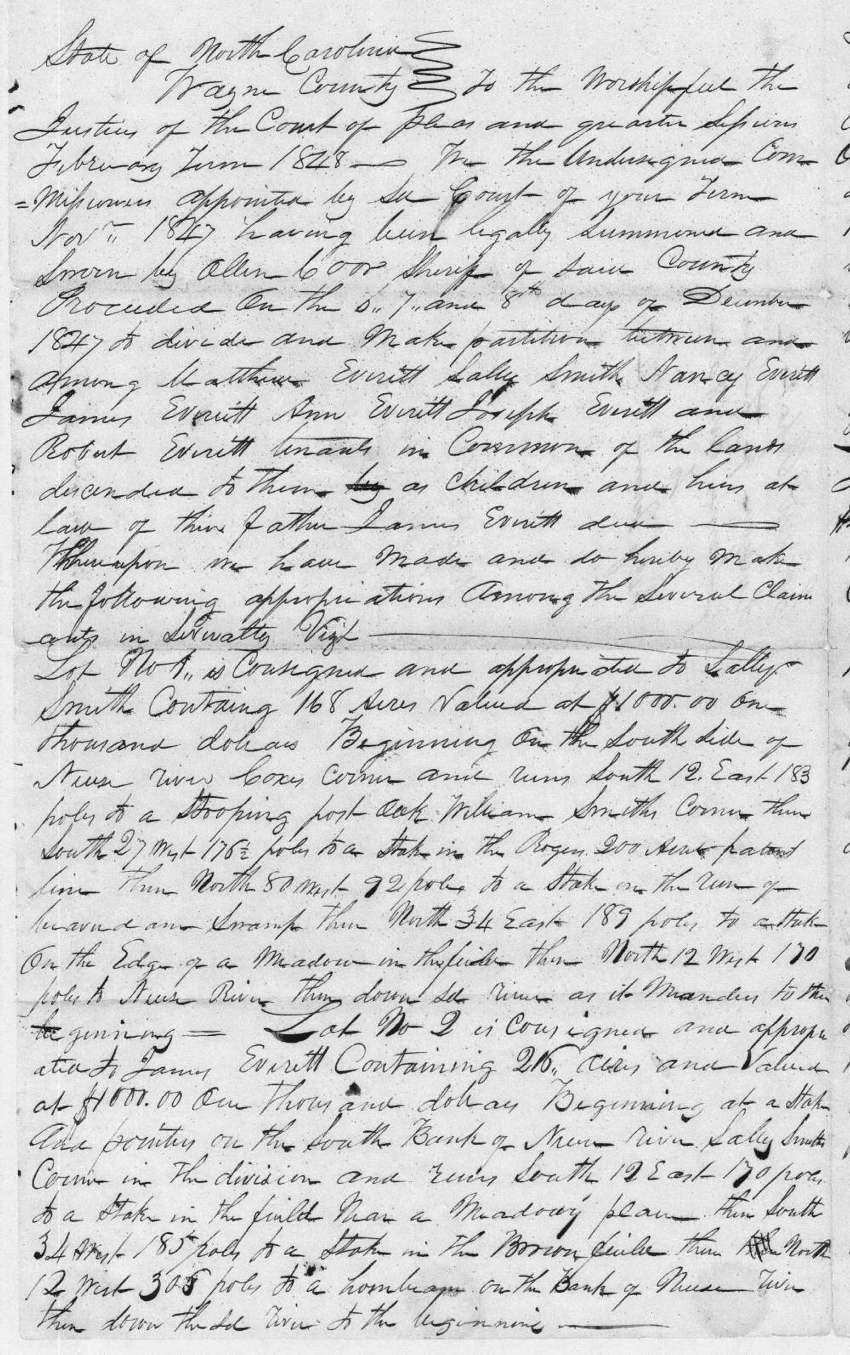 State of North Carolina
Wayne County To the Worshipful the
Justices of the Court of pleas and quarter Sessions
February Term 1848 — We the Undersigned Com
=missioners appointed by sd Court of your Term
Nov.r 1847 having been legally Summoned and
Sworn by Ollen Coor Sherif of said County
Proceeded On the 7,, and 8th day of December
1847 to divide and Make partition between and
Among Matthew Everitt Sally Smith Nancy Everitt
James Everitt Ann Everitt Joseph Everitt and
Robert Everitt tenants in Common of the lands
descended to them by as Children and heirs at
law of thire father James Everitt decd —
Whereupon we have Made and do hereby Make
the following appropriations Among the Several Claim
ants in Severalty Vizt —
Lot No 1,, is Consigned and appropriated to Sally
Smith Containg 168 Acres Valued at $1000.00 One
thousand dollars Beginning On the South Side of
Neuse river Coxes Corner and runs South 12 East 183
poles to a Stooping post Oak William Smiths Corner then
South 27 West 176½ poles to a Stake in the Rogers 200 Acres patent
line then North 80 West 92 poles to a Stake on the run of
beaverdam Swamp then North 34 East 189 poles to a stake
On the Edge of a Meadow in the field then North 12 West 170
poles to Neuse River then down sd river as it Meanders to the
beginning = Lot No 2 is Consigned and appropri
ated to James Everitt Containing 216,, acres and Valued
at $1000.00 One thousand dollars Beginning at a Stake
And pointers on the South Bank of Neuse river Sally Smiths
Corner in the division and runs South 12 East 170 poles
to a Stake in the field Near a Meadowy place then South
34 West 185 poles to a Stake in the Broom field then North
12 West 305 poles to a hornbeam on the Bank of Neuse river
then down the sd river to the beginning —